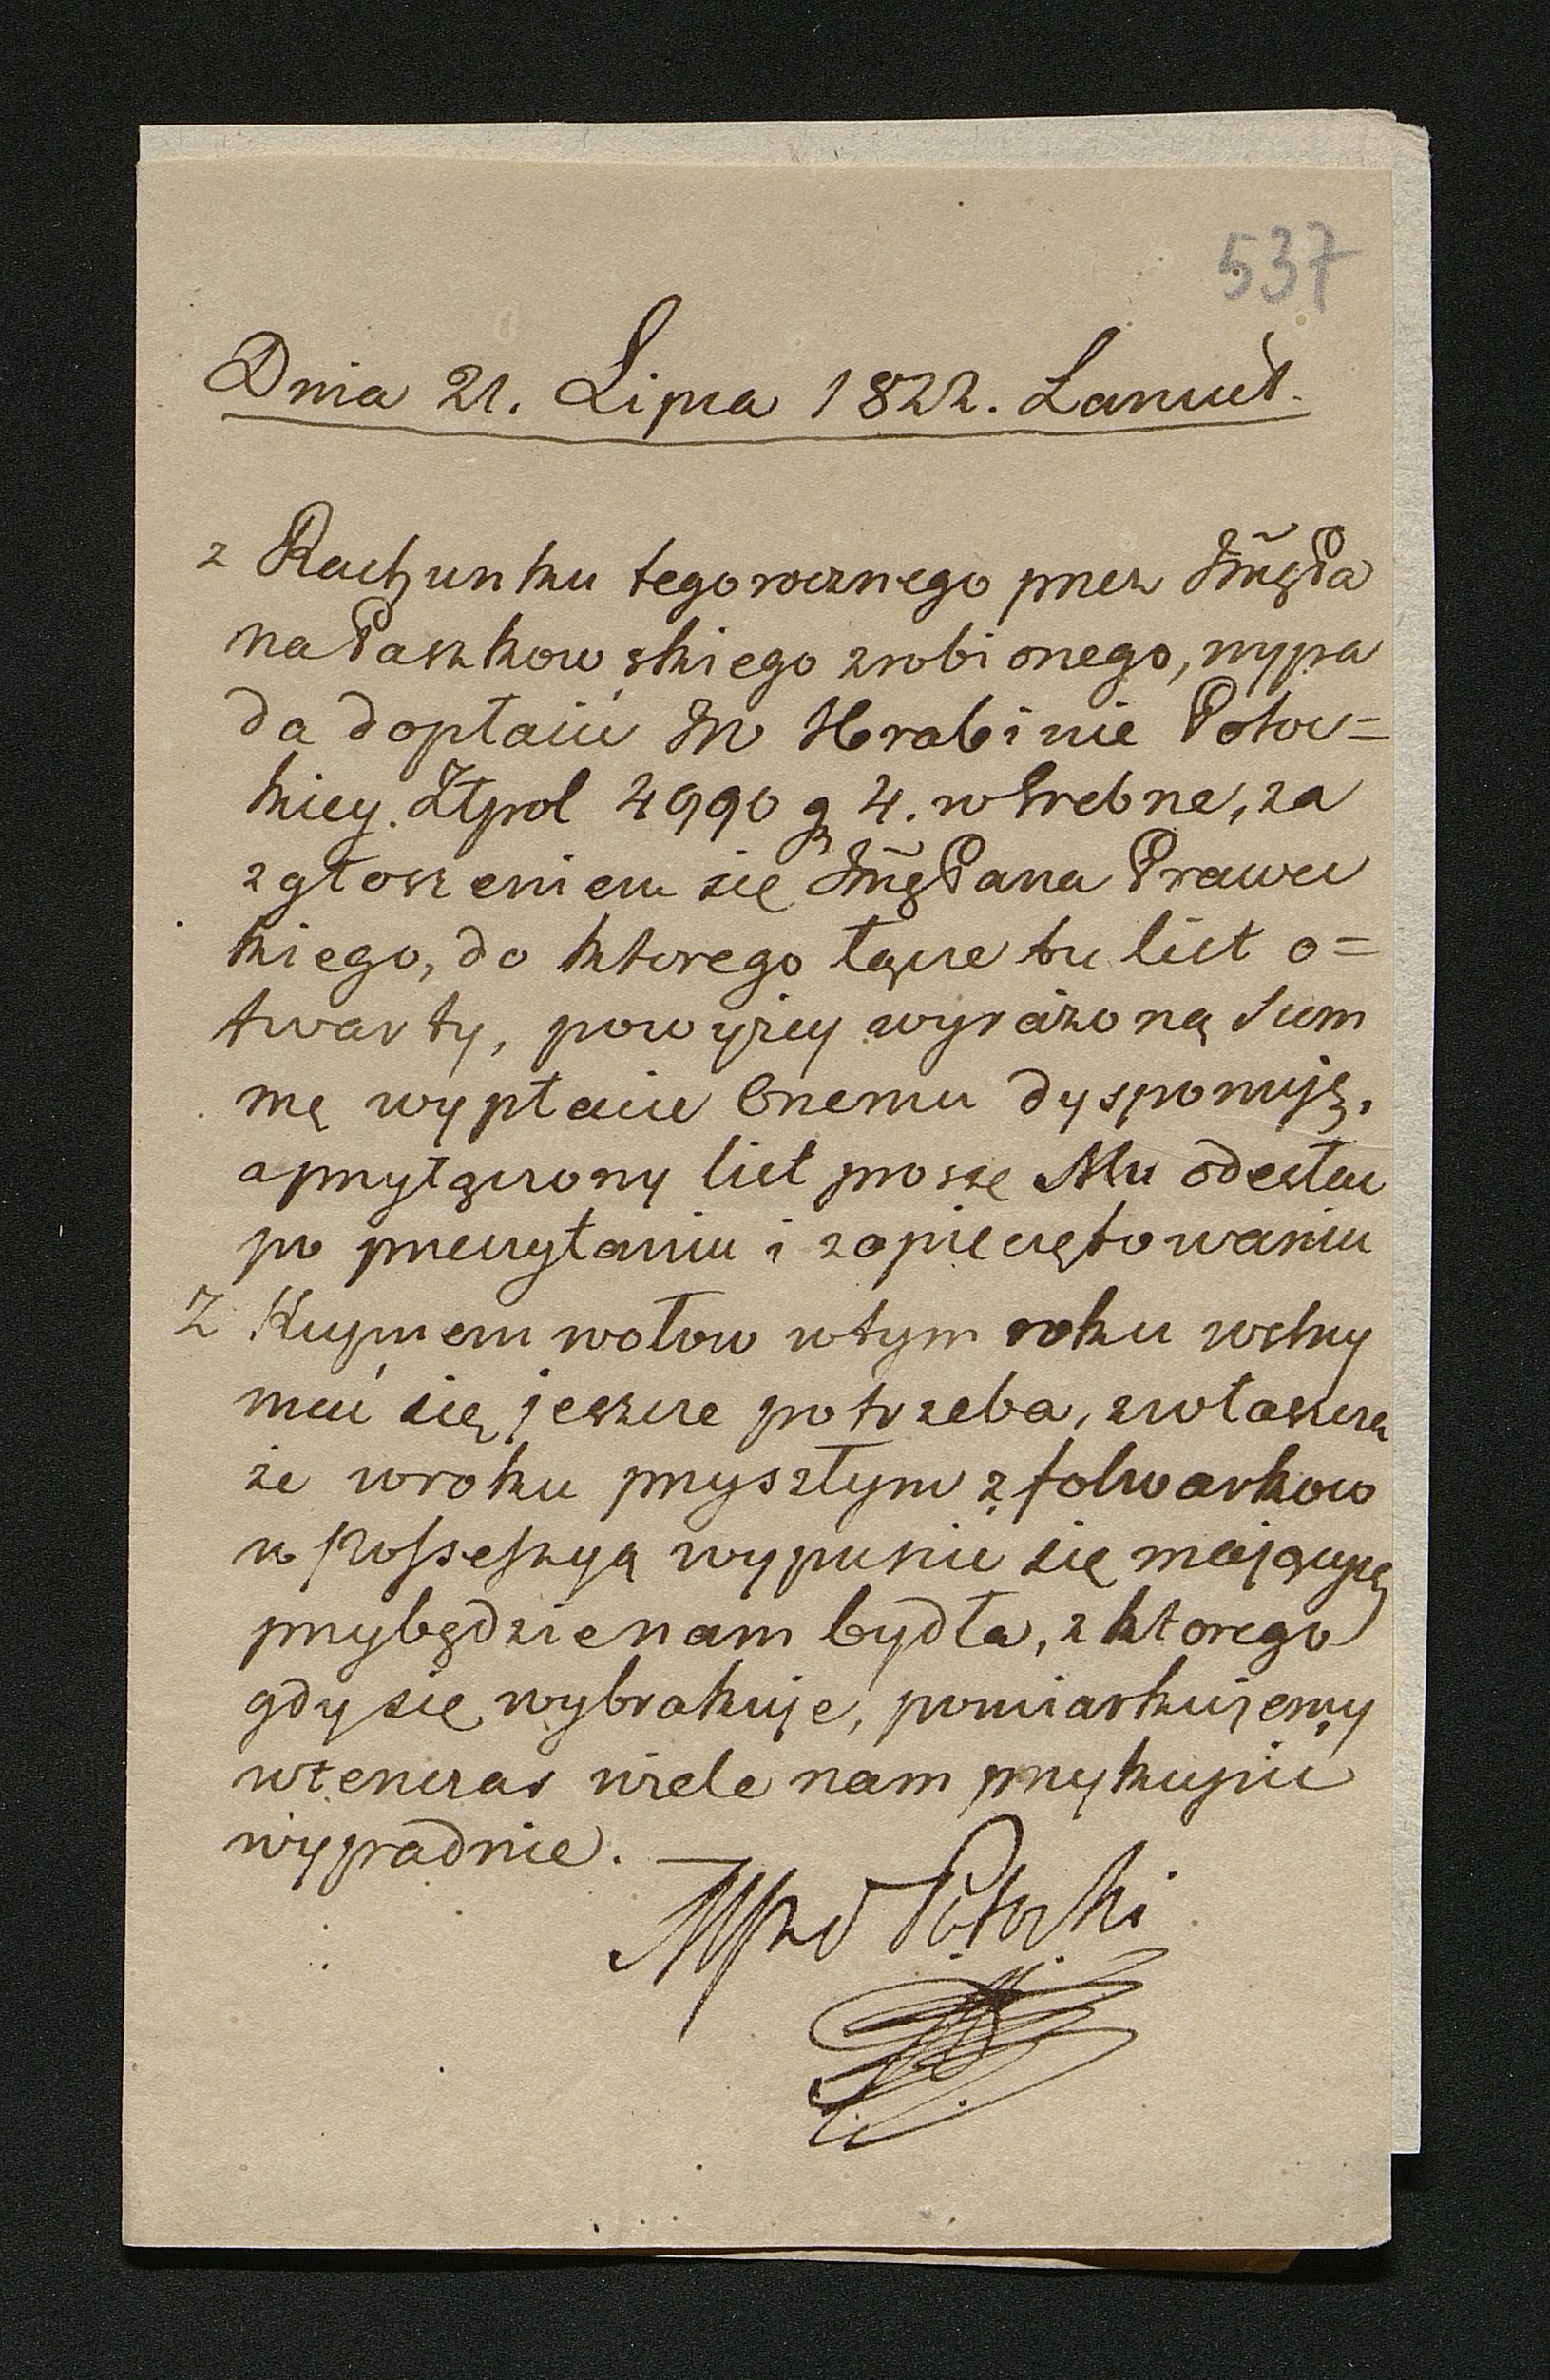 537
Dnia 21. Lipca 1822. Lancut.
z Rachunku tegorocznego przez JmęPa
na Paszkowskiego zrobionego, wypa
da dopłacić JW Hrabinie Potoc=
kiey. Złpol 4990 g 4. w Srebrze, za
zgłoszeniem się JmęPana Prawec
kiego, do ktorego łącze tu list o=
twarty, powyżey wyrażoną Sum
mę wypłacić Onemu dysponuję,
a przyłączony list proszę Mu odesłać
po przeczytaniu i zapieczętowaniu
Z Kupnem wołow w tym roku wstrzy
mać się jeszcze potrzeba, zwłaszcza
że w roku przyszłym z folwarkow
w Possessyą wypuścić się mających
przybędzie nam bydła, z ktorego
gdy się wybrakuje, pomiarkujemy
wtenczas wiele nam przykupić
wypadnie.
Alfred Potocki